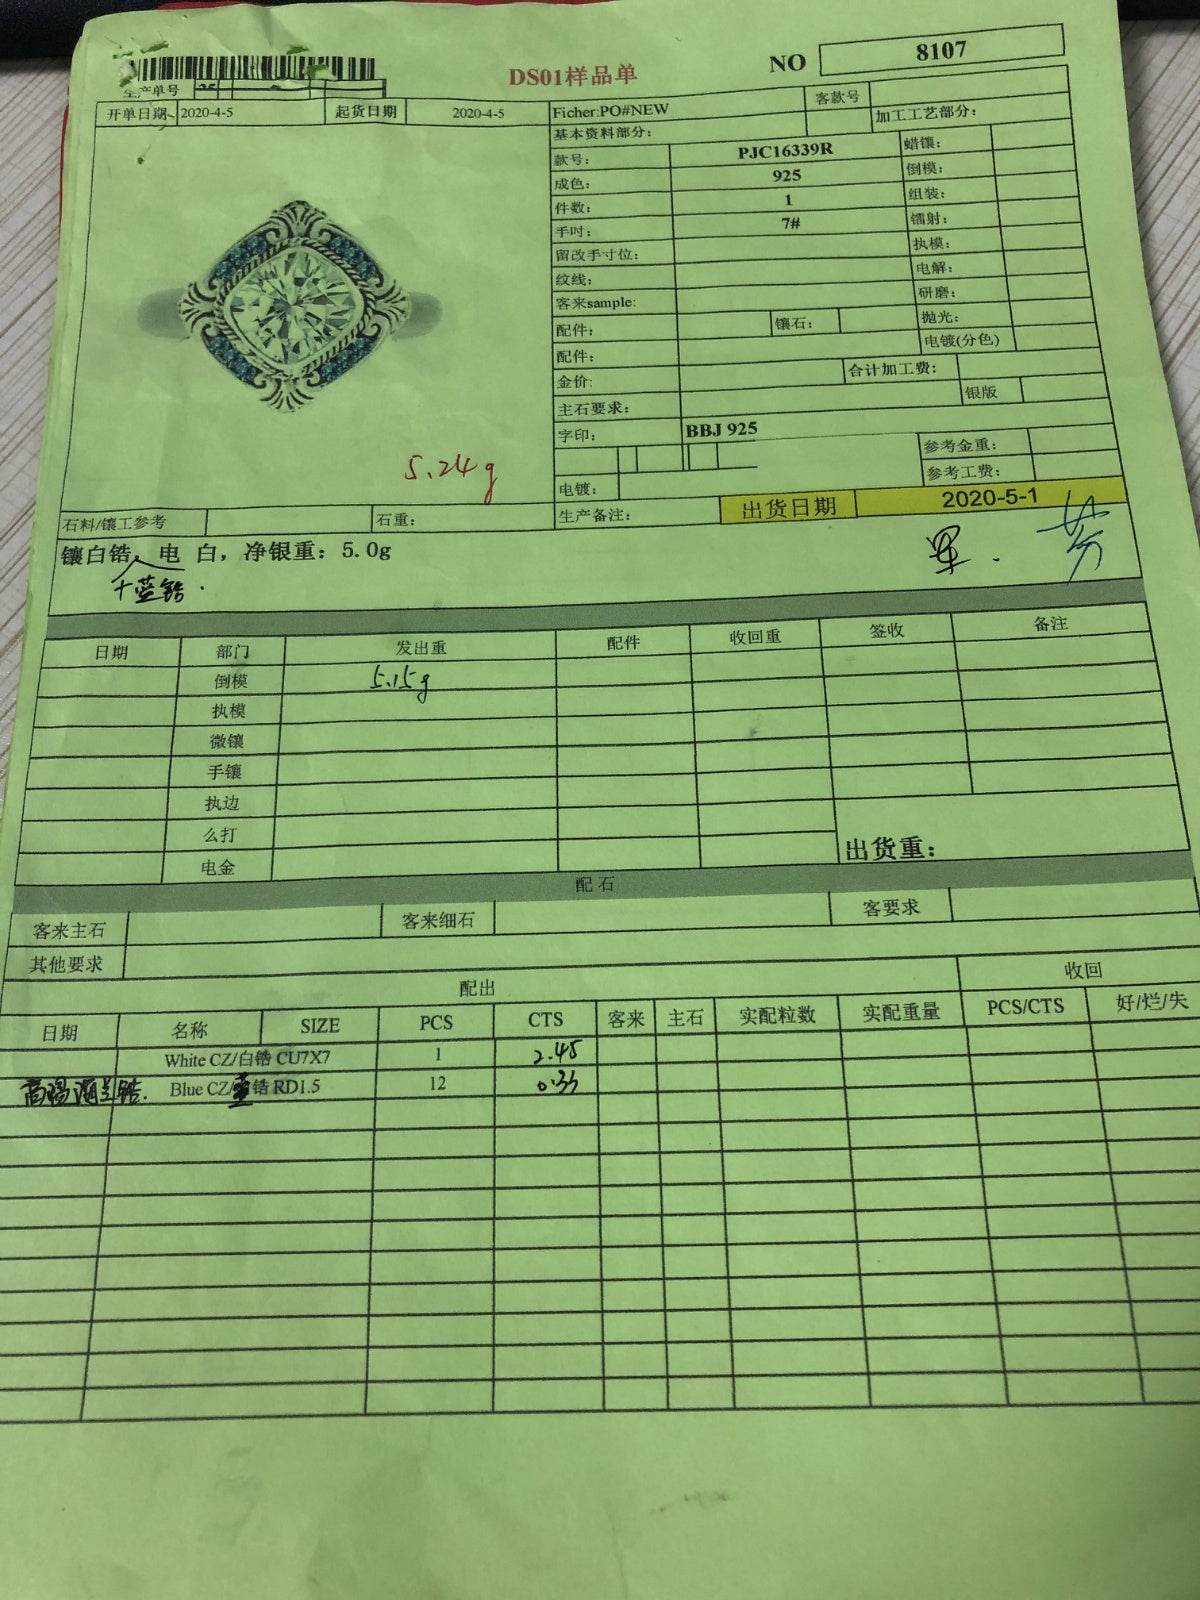 DS01样品单 NO 8107
生产单号
开单日期 2020-4-5 起货日期 2020-4-5 Ficher:PO#NEW 客款号
基本资料部分: 加工工艺部分:
款号: PJC16339R 蜡镶:
成色: 925 倒模:
件数: 1 组装:
手吋: 7# 镭射:
留改手寸位: 执模:
纹线: 电解:
客来sample: 研磨:
配件: 镶石: 抛光:
配件: 电镀(分色)
金价: 合计加工费:
主石要求: 银版
字印: BBJ 925
参考金重:
参考工费:
5.24g
电镀:
石料/镶工参考 石重: 生产备注: 出货日期 2020-5-1
镶白锆, 电 白, 净银重: 5.0g
+蓝锆.
日期 部门 发出重 配件 收回重 签收 备注
倒模 5.15g
执模
微镶
手镶
执边
么打
电金
出货重:
配石
客来主石 客来细石 客要求
其他要求
配出 收回
日期 名称 SIZE PCS CTS 客来 主石 实配粒数 实配重量 PCS/CTS 好/烂/失
White CZ/白锆 CU7X7 1 2.45
Blue CZ/蓝锆 RD1.5 12 0.33